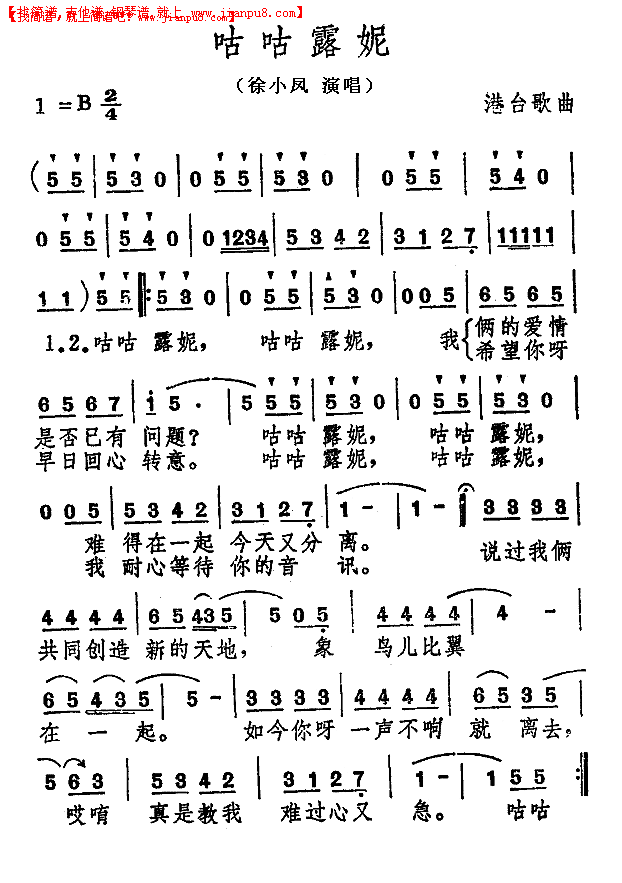 【找简谱,吉他谱,钢琴谱,就上 www.jianpu8.com】
【我简谱,就上简谱吧? www.jianpu8.com】
咕咕露妮
(徐小凤 演唱)
1 = B 2/4 港台歌曲
( 5 5 | 5 3 0 | 0 5 5 | 5 3 0 | 0 5 5 | 5 4 0 |
0 5 5 | 5 4 0 | 0 1234 | 5 3 4 2 | 3 1 2 7 | 11111 |
1 1 ) 5 5 |: 5 3 0 | 0 5 5 | 5 3 0 | 0 0 5 | 6 5 6 5 |
1.2.咕咕 露妮, 咕咕 露妮, 我{俩的爱情
希望你呀
6 5 6 7 | i 5 · | 0 5 5 | 5 3 0 | 0 5 5 | 5 3 0 |
是否已有 问题? 咕咕 露妮, 咕咕 露妮,
早日回心 转意。 咕咕 露妮, 咕咕 露妮,
0 0 5 | 5 3 4 2 | 3 1 2 7 | 1 - | 1 - | 3 3 3 3 |
难 得在一起 今天又分 离。 说过我俩
我 耐心等待 你的音 讯。
4 4 4 4 | 6 5 435 | 5 0 5 | 4 4 4 4 | 4 - |
共同创造 新的天地, 象 鸟儿比翼
6 5 4 3 5 | 5 - | 3 3 3 3 | 4 4 4 4 | 6 5 3 5 |
在 一 起。 如今你呀 一声不响 就 离去,
5 6 3 | 5 3 4 2 | 3 1 2 7 | 1 - | 1 5 5 :|
哎唷 真是教我 难过心又 急。 咕咕